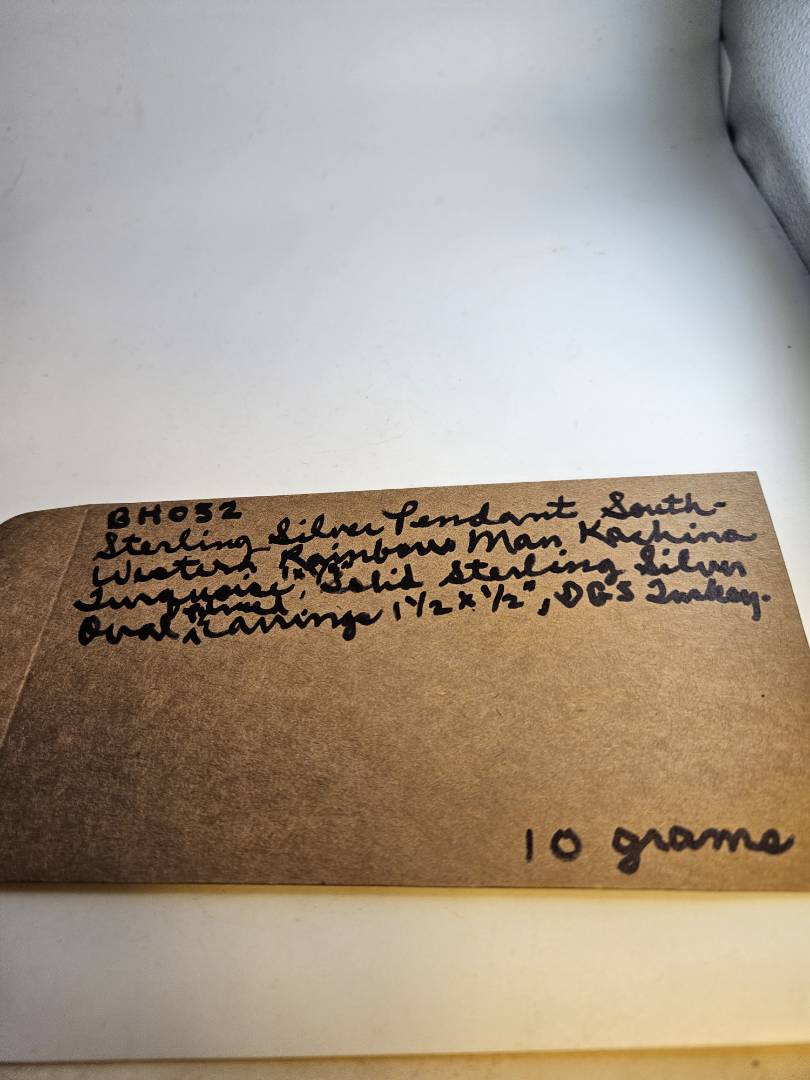 BH052
Sterling Silver Pendant South-
Western Rainbow Man Kachina
Turquoise, Solid Sterling Silver
Oval Earrings 1 1/2 x 1/2", DGS Turkey.
10 grams